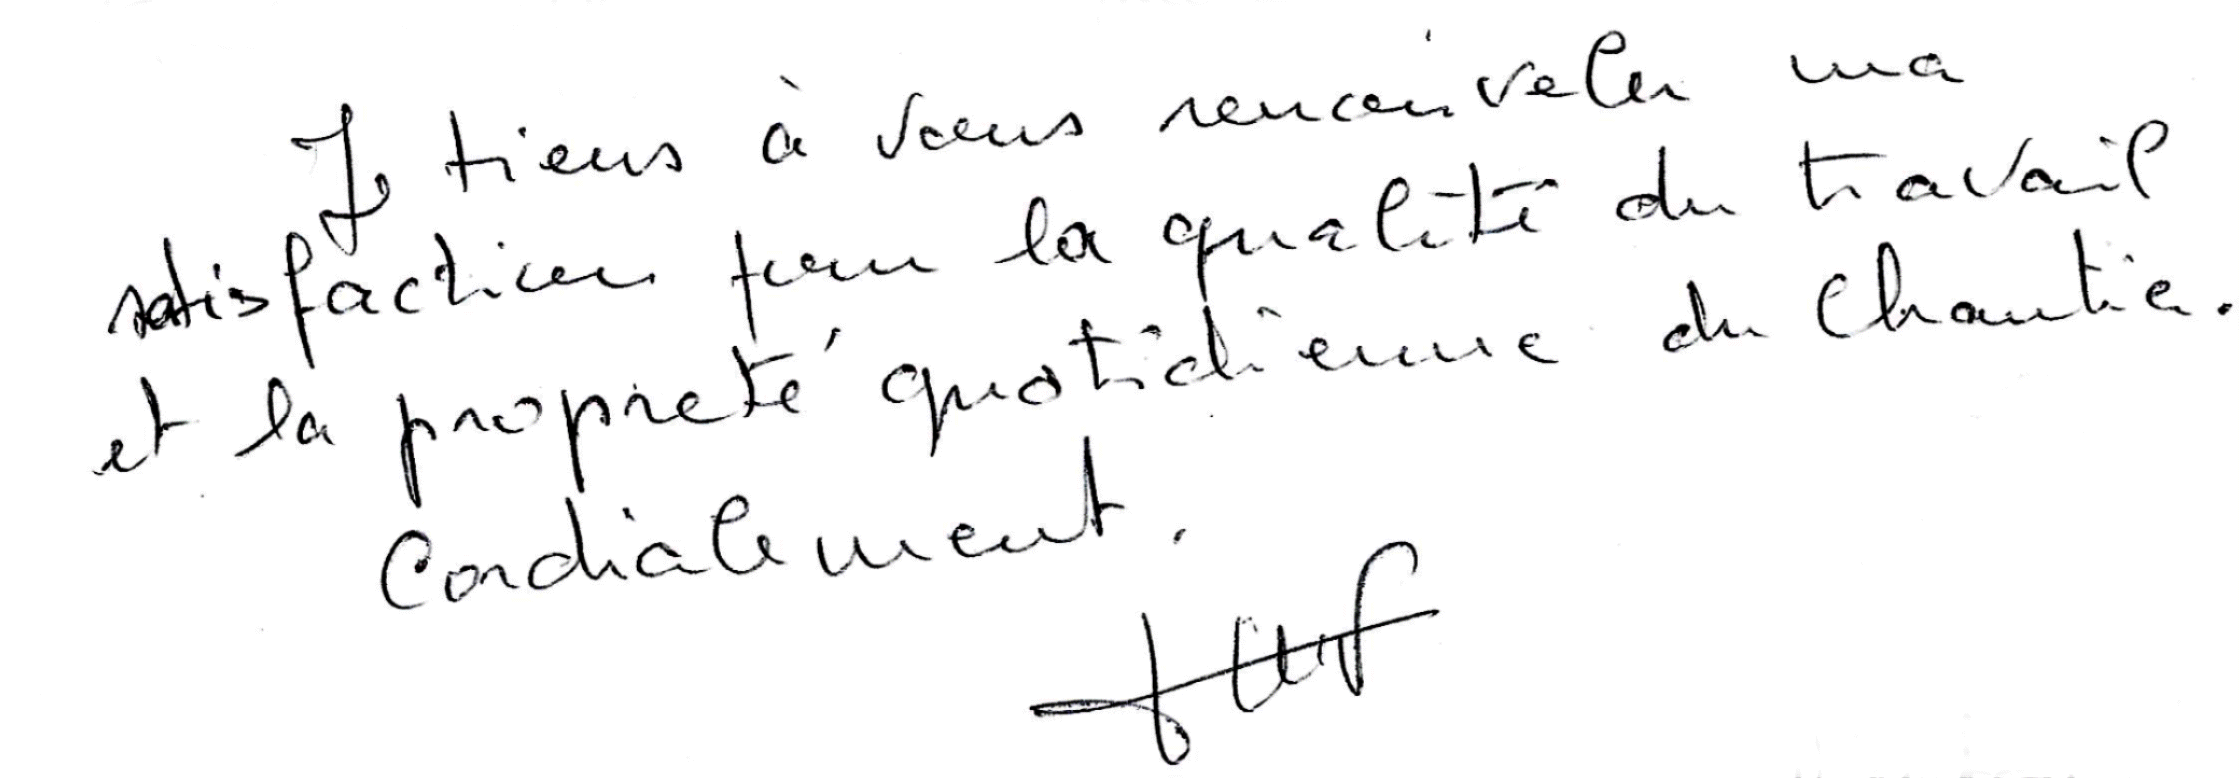 Je tiens à vous renouveler ma
satisfaction pour la qualité du travail
et la propreté quotidienne du chantier.
Cordialement.